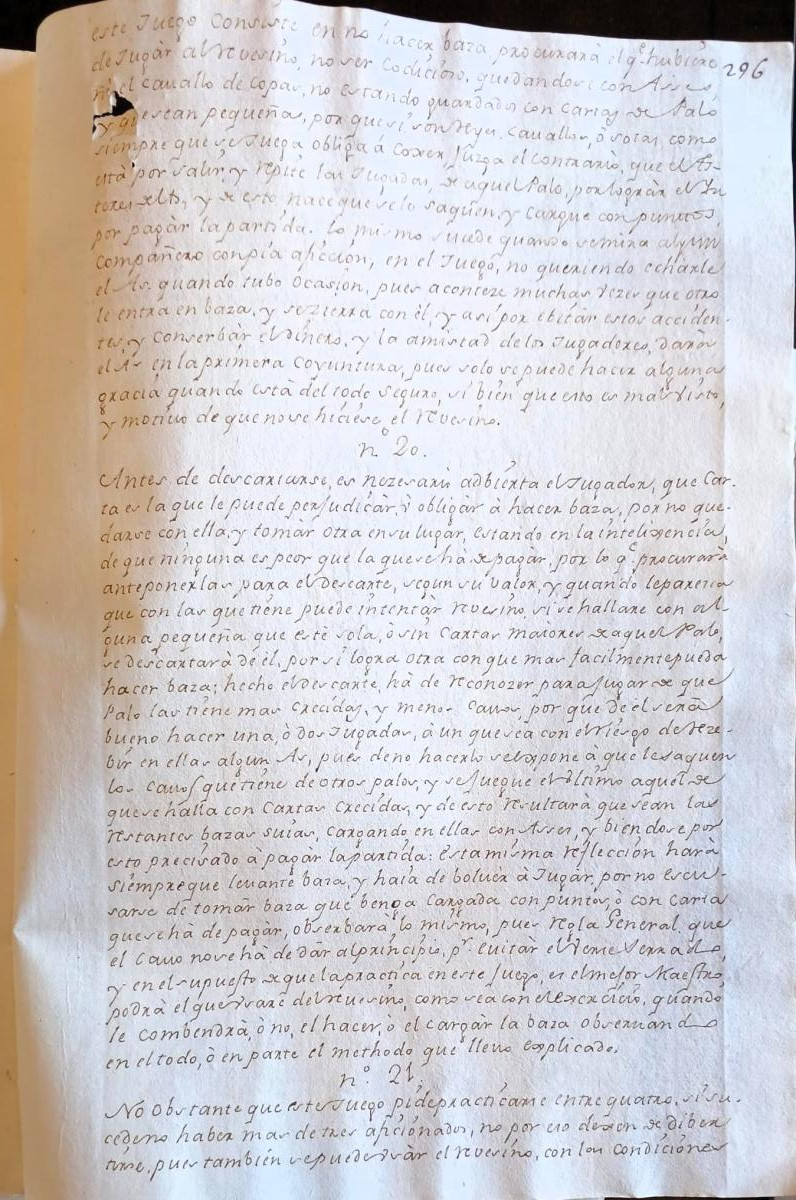 296
este Juego consiste en no hacer baza procurarà el q.e hubiere
de Jugàr al reuesino, no ser codicioso, quedandose con Asses,
ni el cauallo de copas, no estando guardados con cartas de Palo
y que sean pequeñas, por que si son Reyes, Cauallos, ò sotas, como
siempre que se Juega obliga à Cojer, Juzga el contrario, que el As
està por salir, y repite las Jugadas, de aquel Palo, por logràr el In
teres del As, y de esto nace que se lo saquen, y cargue con puntos,
por pagàr la partida. Lo mismo sucede quando se mira algun
Compañero con pia aficcion, en el Juego, no queriendo echarle
el As, quando tubo ocasion, pues aconteze muchas vezes que otro
le entra en baza, y se zierra con èl, y asi por ebitàr estos acciden-
tes, y Conserbàr el dinero, y la amistad de los Jugadores, darà
el As en la primera Coyuntura, pues solo se puede hacer alguna
gracia quando està del todo seguro, si bien que esto es mal visto,
y motiuo de que no se hiciese el reuesino.
n.o 20.
Antes de descartarse, es nezesario adbierta el Jugador, que Car-
ta es la que le puede perJudicàr, ù obligàr à hacer baza, por no que-
darse con ella, y tomàr otra en su lugar, estando en la intelixencia,
de que ninguna es peor que la que se hà de pagar, por lo q.e procurarà
anteponerlas para el descarte, segun su valor, y quando le parezca
que con las que tiene puede intentàr reuesino, si se hallare con al-
guna pequeña que estè sola, ò sin Cartas maiores de aquel Palo,
se descartarà de èl, por si logra otra con que mas facilmente pueda
hacer baza; hecho el descarte, hà de reconozer para Jugar de que
Palo las tiene mas crecidas, y menos Cauos, por que de el serà
bueno hacer una, ò dos Jugadas, à un que sea con el riesgo de reze-
bir en ellas algun As, pues de no hacerlo se expone à que le saquen
los Cauos que tiene de otros palos, y se Juegue el vltimo aquel de
que se halla con Cartas crecidas, y de esto resultarà que sean las
restantes bazas suias, cargando en ellas con Asses, y biendose por
esto precisado à pagàr la partida: esta misma reflección harà
siempre que leuante baza, y haia de boluer à Jugàr, por no escu-
sarse de tomàr baza que benga cargada con puntos, ò con carta
que se hà de pagàr, obserbarà lo mismo, pues regla General, que
el Cauo no se hà de dàr al principio, p.r euitar el
y en el supuesto de que la practica en este Juego, es el mejor Maestro,
podrà el que vsare del reuesino, como sea con el exercicio, quando
le combendrà, ò no, el hacer, ò el cargàr la baza obseruando
en el todo, ò en parte el methodo que lleuo explicado.
n.o 21.
No obstante que este Juego pide practicarse entre quatro, si su-
cede no haber mas de tres aficionados, no por eso dexen de diber
tirse, pues tambièn se puede vsàr el reuesino, con las condiciones